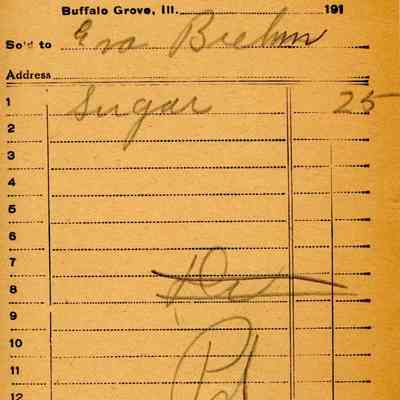 Buffalo Grove, Ill. 191
Sold to Eva Biehm
Address
1 Sugar 25
2
3
4
5
6
7
8
9
10
11
12
Pd